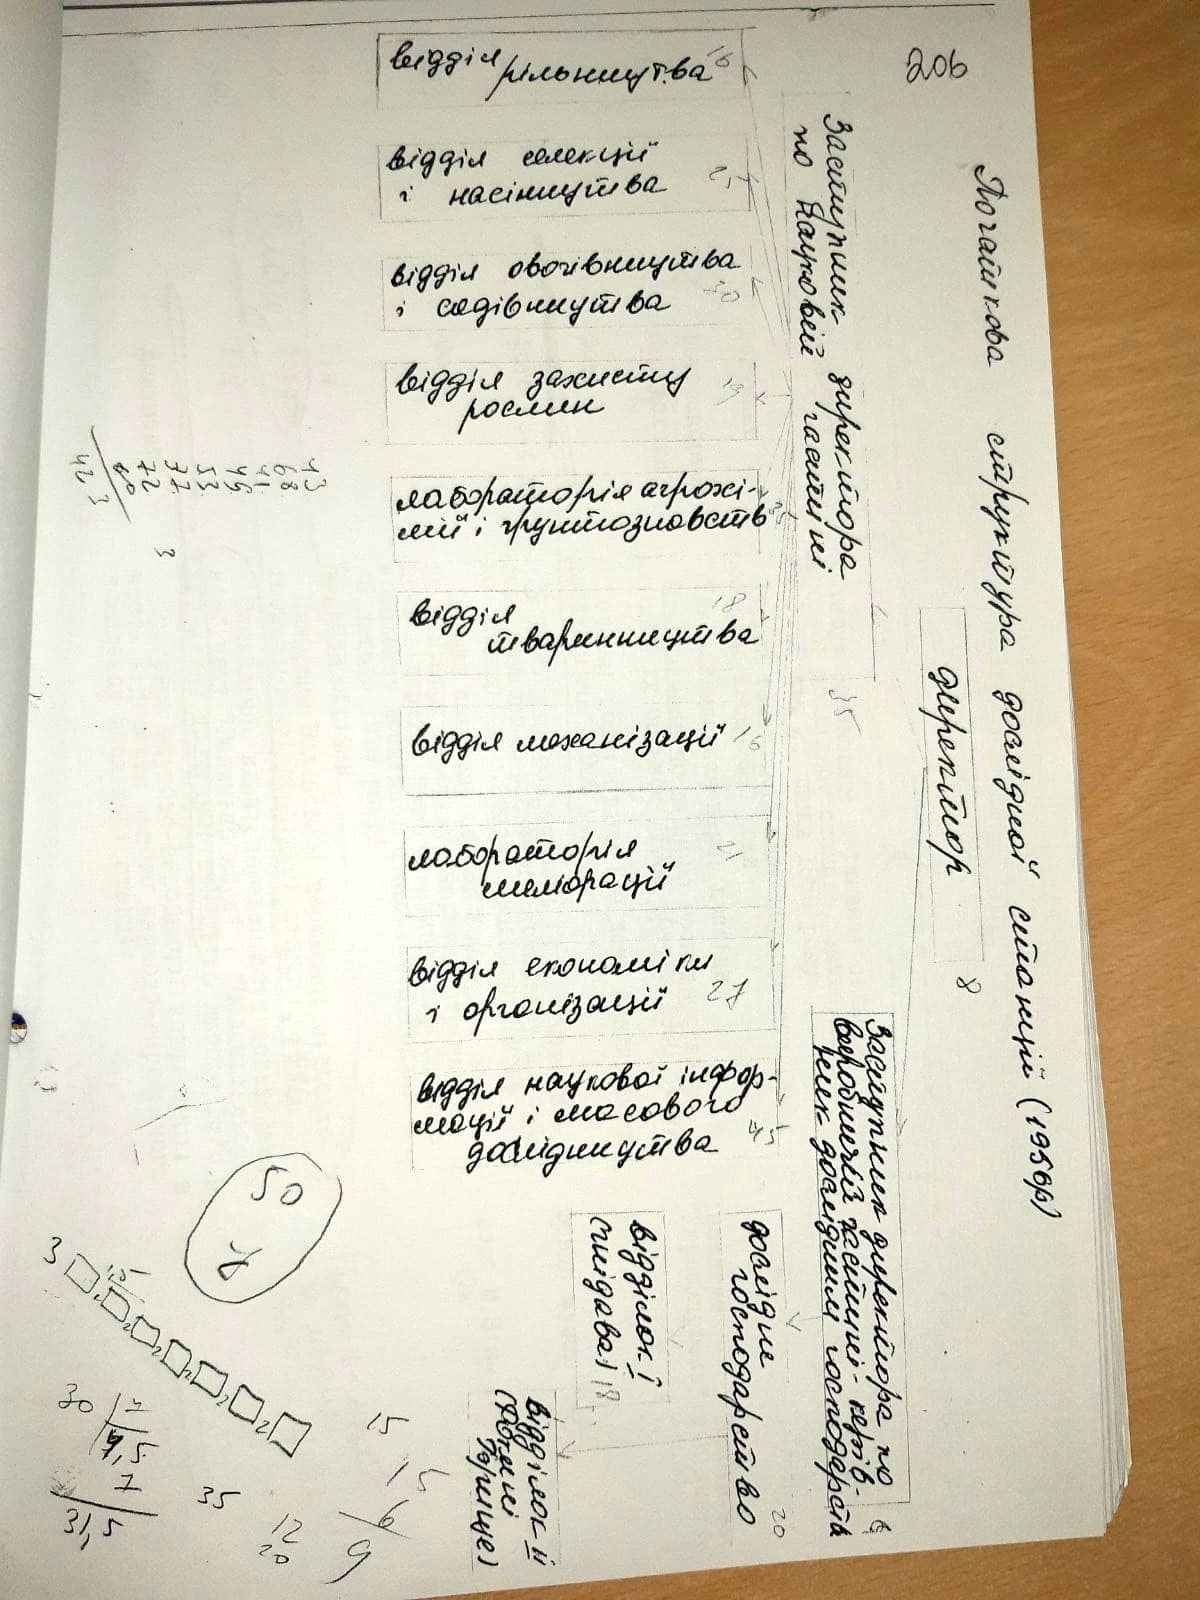 206
Початкова структура дослідної станції (1956р)
директор
8
Заступник директора
по Науковій частині
35
Заступник директора по
виробничій частині - керів-
ник дослідним господарств
6
відділ
рільництва
16
відділ селекції
і насінництва
відділ овочівництва
і садівництва
відділ захисту
рослин
19
лабораторія агрохі-
мії і ґрунтознавств
відділ
тваринництва
18
відділ механізації
16
лабораторія
меліорації
21
відділ економіки
і організації
27
відділ наукової інфор-
мації і масового
дослідництва
45
дослідне
господарство
20
відділок І
(гнідава)
18
відділок ІІ
43
68
41
45
53
77
72
423
3
50
3
30
7
4,5
7
31,5
35
12
20
15
15
6
9